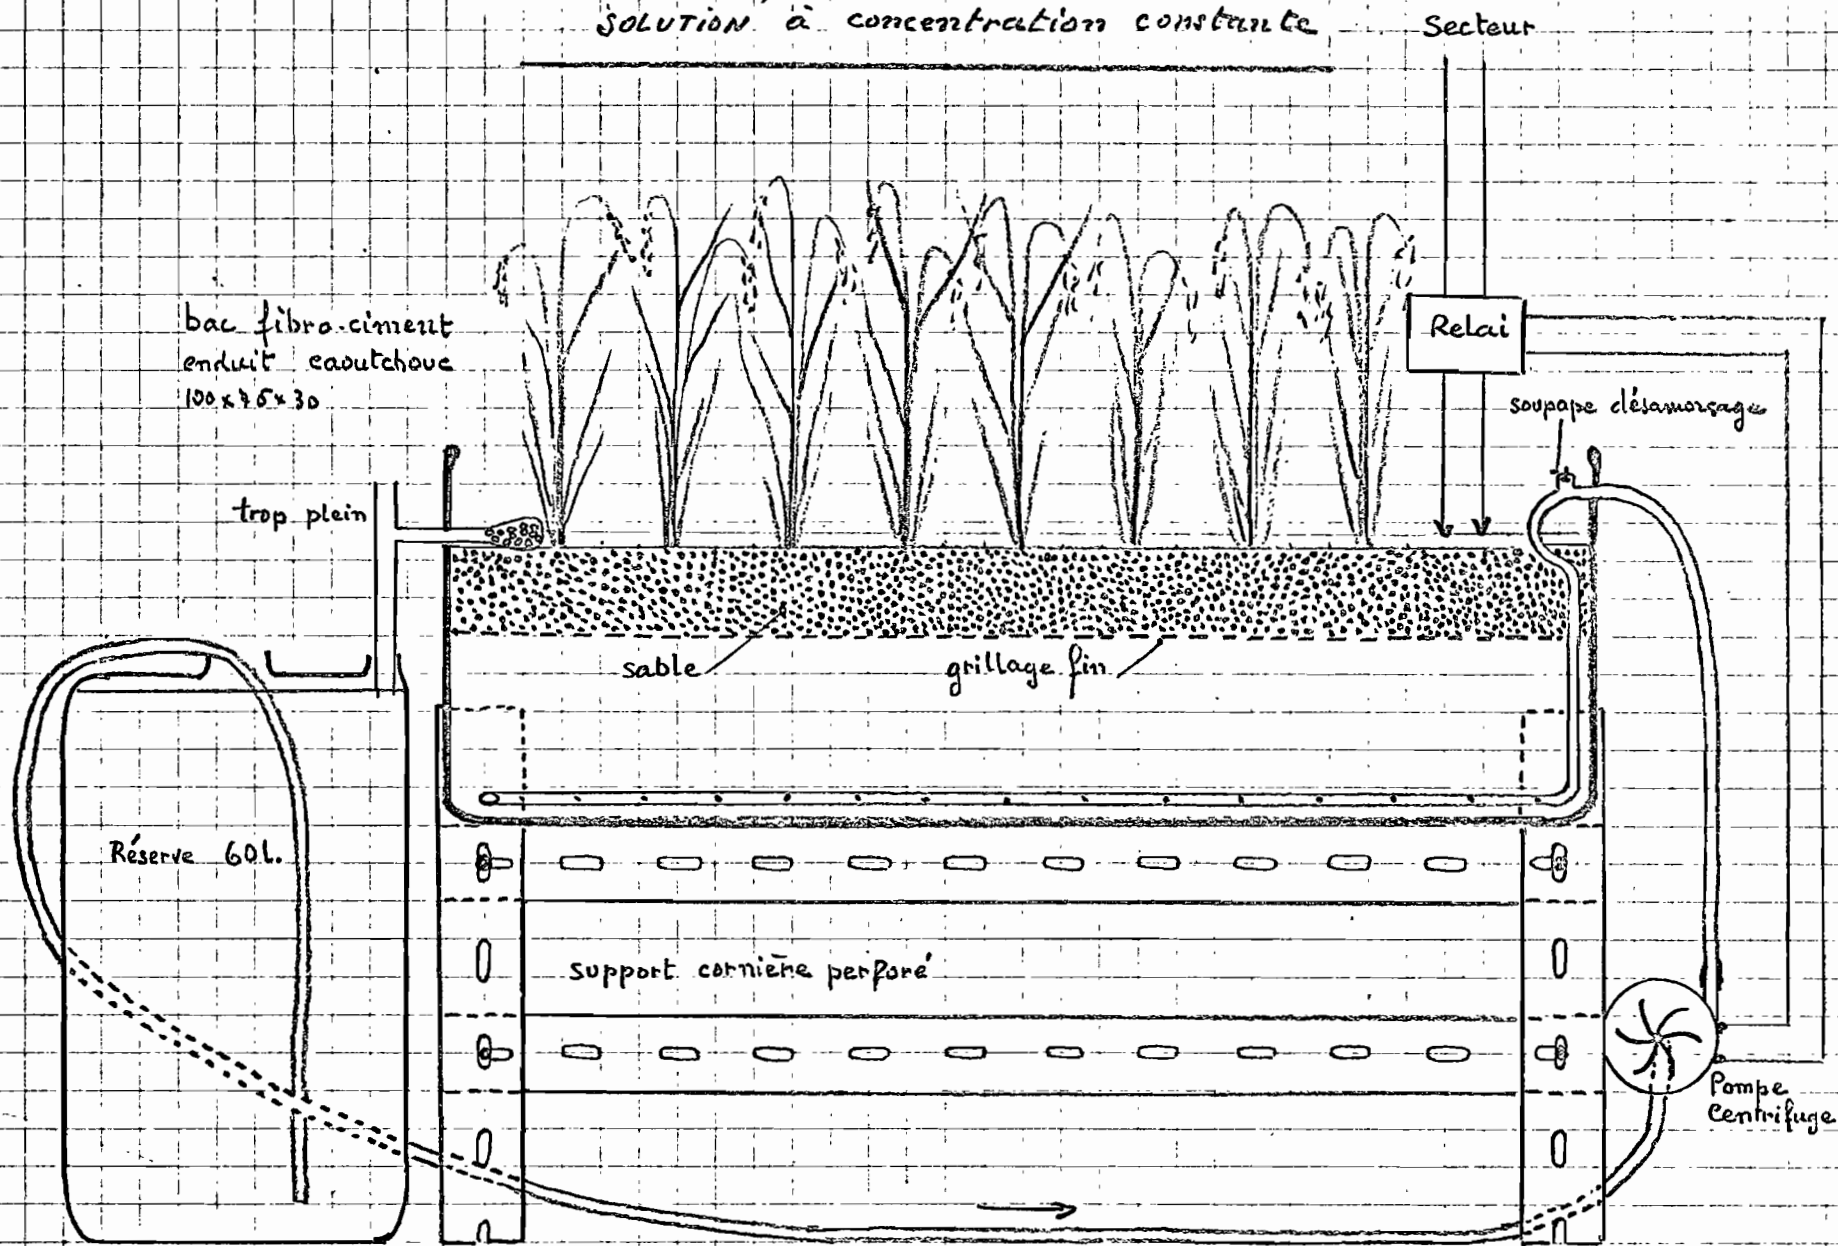 SOLUTION à concentration constante
Secteur
bac fibro-ciment
enduit caoutchouc
Relai
soupape désamorçage
trop plein
sable
grillage fin
Réserve 60l.
support cornière perforé
Pompe
centrifuge